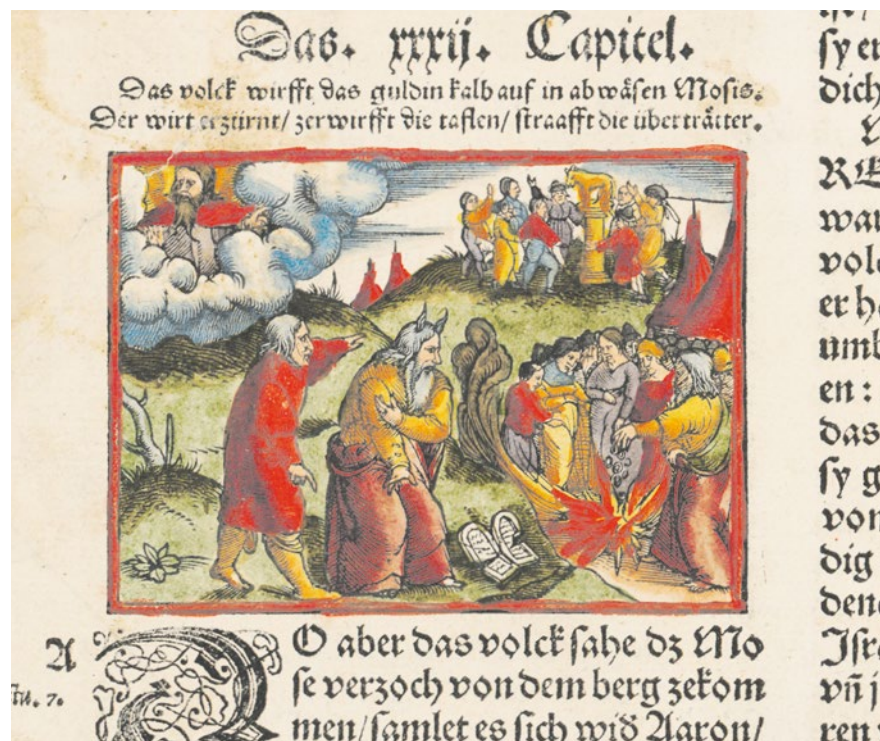 Das. xxxij. Capitel.
Das volck wirfft das guldin kalb auf in abwäsen Mosis.
Der wirt erzürnt/ zerwirfft die taflen/ straafft die überträtter.
A
O aber das volck sahe dz Mo
se verzoch von dem berg zekom
men/ samlet es sich wid Aaron/
sy er
dich
war
volc
er h
umb
en :
das
sy g
von
dig
den
Isr
vñ j
ren